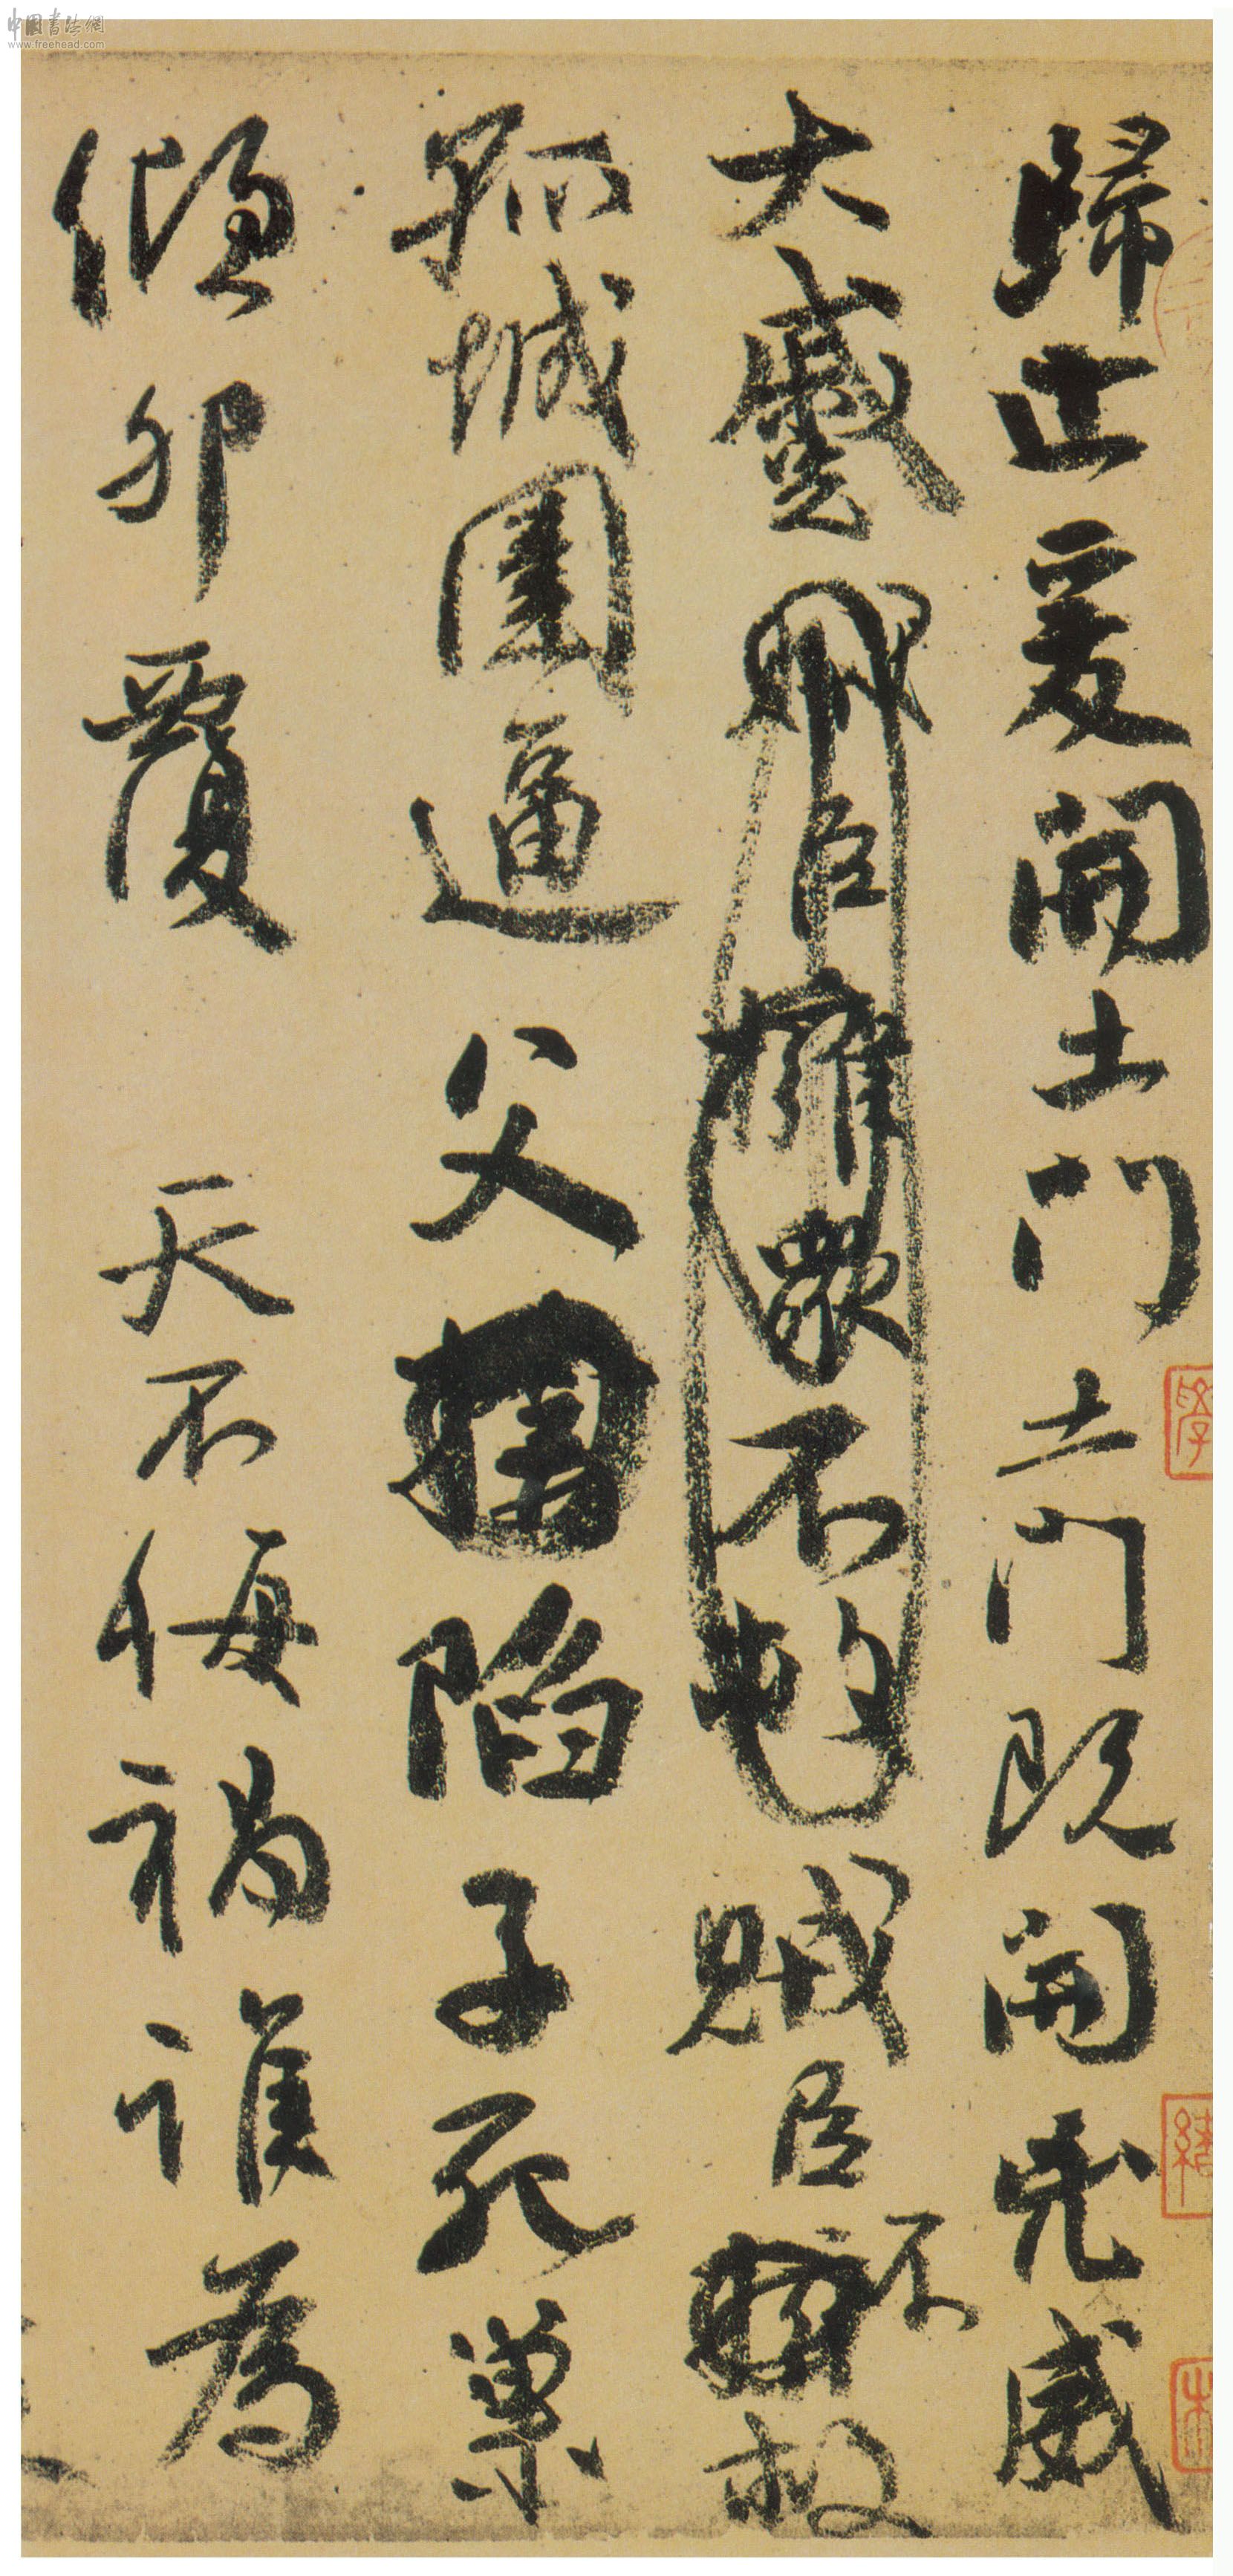 歸止爰開土門土門既開兇威
大蹙賊臣擁眾不救賊臣不救
孤城圍逼父陷子死巢
傾卵覆天不悔禍誰為
中国书法網
www.freehead.com